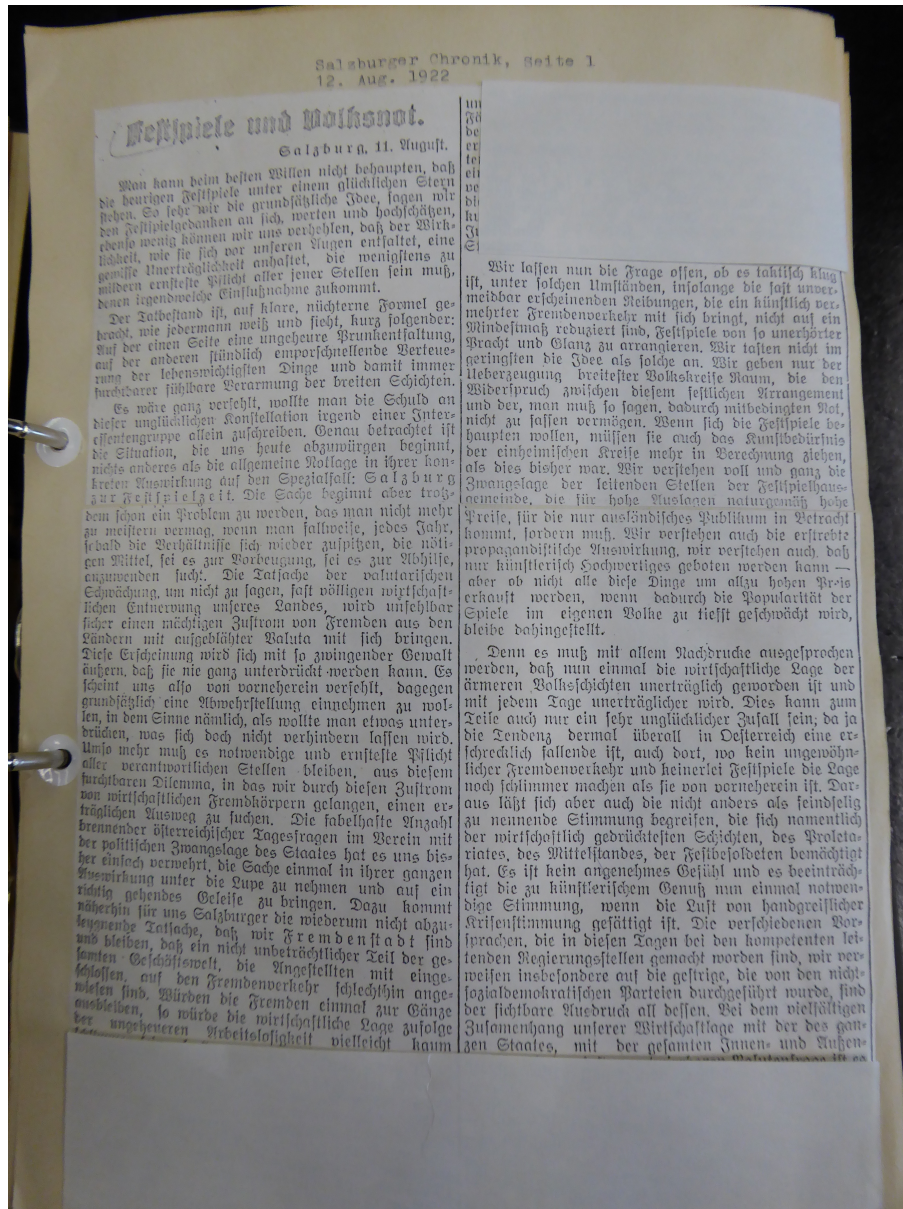 Salzburger Chronik, Seite 1
12. Aug. 1922
Festspiele und Volksnot.
Salzburg, 11. August.
Man kann beim besten Willen nicht behaupten, daß
die heurigen Festspiele unter einem glücklichen Stern
stehen. So sehr wir die grundsätzliche Idee, sagen wir
den Festspielgedanken an sich, werten und hochschätzen,
ebenso wenig können wir uns verhehlen, daß der Wirk-
lichkeit, wie sie sich vor unseren Augen entfaltet, eine
gewisse Unerträglichkeit anhaftet, die wenigstens zu
mildern ernsteste Pflicht aller jener Stellen sein muß,
denen irgendwelche Einflußnahme zukommt.
Der Tatbestand ist, auf klare, nüchterne Formel ge-
bracht, wie jedermann weiß und sieht, kurz folgender:
Auf der einen Seite eine ungeheure Prunkentfaltung,
auf der anderen stündlich emporschnellende Verteue-
rung der lebenswichtigsten Dinge und damit immer
furchtbarer fühlbare Verarmung der breiten Schichten.
Es wäre ganz verfehlt, wollte man die Schuld an
dieser unglücklichen Konstellation irgend einer Inter-
essentengruppe allein zuschreiben. Genau betrachtet ist
die Situation, die uns heute abzuwürgen beginnt,
nichts anderes als die allgemeine Notlage in ihrer kon-
kreten Auswirkung auf den Spezialfall: Salzburg
zur Festspielzeit. Die Sache beginnt aber trotz-
dem schon ein Problem zu werden, das man nicht mehr
zu meistern vermag, wenn man fallweise, jedes Jahr,
sobald die Verhältnisse sich wieder zuspitzen, die nöti-
gen Mittel, sei es zur Vorbeugung, sei es zur Abhilfe,
anzuwenden sucht. Die Tatsache der valutarischen
Schwächung, um nicht zu sagen, fast völligen wirtschaft-
lichen Entnervung unseres Landes, wird unfehlbar
sicher einen mächtigen Zustrom von Fremden aus den
Ländern mit aufgeblähter Valuta mit sich bringen.
Diese Erscheinung wird sich mit so zwingender Gewalt
äußern, daß sie nie ganz unterdrückt werden kann. Es
scheint uns also von vorneherein verfehlt, dagegen
grundsätzlich eine Abwehrstellung einnehmen zu wol-
len, in dem Sinne nämlich, als wollte man etwas unter-
drücken, was sich doch nicht verhindern lassen wird.
Umso mehr muß es notwendige und ernsteste Pflicht
aller verantwortlichen Stellen bleiben, aus diesem
furchtbaren Dilemma, in das wir durch diesen Zustrom
von wirtschaftlichen Fremdkörpern gelangen, einen er-
träglichen Ausweg zu suchen. Die fabelhafte Anzahl
brennender österreichischer Tagesfragen im Verein mit
der politischen Zwangslage des Staates hat es uns bis-
her einfach verwehrt, die Sache einmal in ihrer ganzen
Auswirkung unter die Lupe zu nehmen und auf ein
richtig gehendes Geleise zu bringen. Dazu kommt
näherhin für uns Salzburger die wiederum nicht abzu-
leugnende Tatsache, daß wir Fremdenstadt sind
und bleiben, daß ein nicht unbeträchtlicher Teil der ge-
samten Geschäftswelt, die Angestellten mit einge-
schlossen, auf den Fremdenverkehr schlechthin ange-
wiesen sind. Würden die Fremden einmal zur Gänze
ausbleiben, so würde die wirtschaftliche Lage zufolge
der ungeheueren Arbeitslosigkeit vielleicht kaum
Wir lassen nun die Frage offen, ob es taktisch klug
ist, unter solchen Umständen, insolange die fast unver-
meidbar erscheinenden Reibungen, die ein künstlich ver-
mehrter Fremdenverkehr mit sich bringt, nicht auf ein
Mindestmaß reduziert sind, Festspiele von so unerhörter
Pracht und Glanz zu arrangieren. Wir tasten nicht im
geringsten die Idee als solche an. Wir geben nur der
Ueberzeugung breitester Volkskreise Raum, die den
Widerspruch zwischen diesem festlichen Arrangement
und der, man muß so sagen, dadurch mitbedingten Not,
nicht zu fassen vermögen. Wenn sich die Festspiele be-
haupten wollen, müssen sie auch das Kunstbedürfnis
der einheimischen Kreise mehr in Berechnung ziehen,
als dies bisher war. Wir verstehen voll und ganz die
Zwangslage der leitenden Stellen der Festspielhaus-
gemeinde, die für hohe Auslagen naturgemäß hohe
Preise, für die nur ausländisches Publikum in Betracht
kommt, fordern muß. Wir verstehen auch die erstrebte
propagandistische Auswirkung, wir verstehen auch, daß
nur künstlerisch Hochwertiges geboten werden kann —
aber ob nicht alle diese Dinge um allzu hohen Preis
erkauft werden, wenn dadurch die Popularität der
Spiele im eigenen Volke zu tiefst geschwächt wird,
bleibe dahingestellt.
Denn es muß mit allem Nachdrucke ausgesprochen
werden, daß nun einmal die wirtschaftliche Lage der
ärmeren Volksschichten unerträglich geworden ist und
mit jedem Tage unerträglicher wird. Dies kann zum
Teile auch nur ein sehr unglücklicher Zufall sein; da ja
die Tendenz dermal überall in Oesterreich eine er-
schrecklich fallende ist, auch dort, wo kein ungewöhn-
licher Fremdenverkehr und keinerlei Festspiele die Lage
noch schlimmer machen als sie von vorneherein ist. Dar-
aus läßt sich aber auch die nicht anders als feindselig
zu nennende Stimmung begreifen, die sich namentlich
der wirtschaftlich gedrücktesten Schichten, des Proleta-
riates, des Mittelstandes, der Festbesoldeten bemächtigt
hat. Es ist kein angenehmes Gefühl und es beeinträch-
tigt die zu künstlerischem Genuß nun einmal notwen-
dige Stimmung, wenn die Luft von handgreiflicher
Krisenstimmung gesättigt ist. Die verschiedenen Vor-
sprachen, die in diesen Tagen bei den kompetenten lei-
tenden Regierungsstellen gemacht worden sind, wir ver-
weisen insbesondere auf die gestrige, die von den nicht-
sozialdemokratischen Parteien durchgeführt wurde, sind
der sichtbare Ausdruck all dessen. Bei dem vielfältigen
Zusamenhang unserer Wirtschaftlage mit der des gan-
zen Staates, mit der gesamten Innen- und Außen-